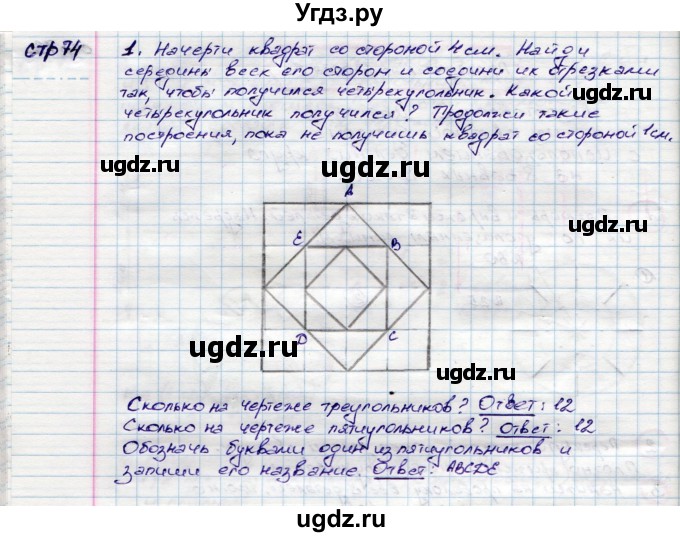 Угdz.ру
стр 74
1. Начерти квадрат со стороной 4 см. Найди
середины всех его сторон и соедини их отрезками
так, чтобы получился четырехугольник. Какой
ugdz.ru
четырехугольник получился? Продолжи такие
построения, пока не получишь квадрат со стороной 1 см.
ugdz.ru
ugdz.ru
ugdz.ru
A
E
B
ugdz.ru
ugdz.ru
D
C
Сколько на чертеже треугольников? Ответ: 12
Сколько на чертеже пятиугольников? Ответ: 12
ugdz.ru
Обозначь буквами один из пятиугольников и
запиши его название. Ответ: ABCDE
ugdz.ru
ugdz.ru
ugdz.ru